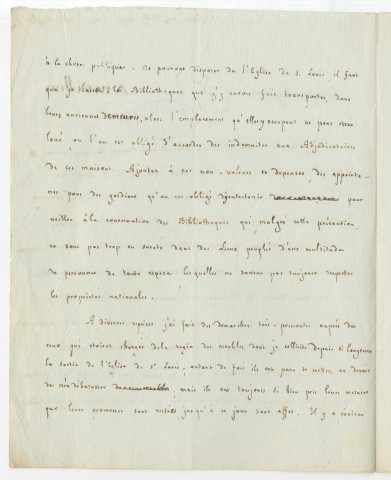 à la chose publique. ne pouvant disposer de l'Eglise de s. Louis il faut
que je laisse les Bibliotheques que j'y aurois fait transporter, dans
leurs anciennes demeures, alors l'emplacement qu'elles y occupent ne peut être
loué ou l'on est obligé d'accorder des indemnités aux Adjudicataires
de ces maisons. Ajoutez à ces non-valeurs et depenses, des appointe-
mens pour des gardiens qu'on est obligé d'entretenir pour
veiller à la conservation des Bibliotheques qui, malgré cette précaution,
ne sont pas trop en sureté dans des Lieux peuplés d'une multitude
de personnes de toute espece lesquelles ne savent pas toujours respecter
les propriétés nationales.
A diverses reprises j'ai fait des démarches très-pressantes auprès de
ceux qui étoient chargés de la régie des meubles dont je sollicite depuis si longtems
la sortie de l'Eglise de st Louis; autant de fois ils ont paru se mettre en devoir
de m'en débarasser mais ils ont toujours si bien pris leurs mesures
que leurs promesses sont restées jusqu'à ce jour sans effet. Il y a environ